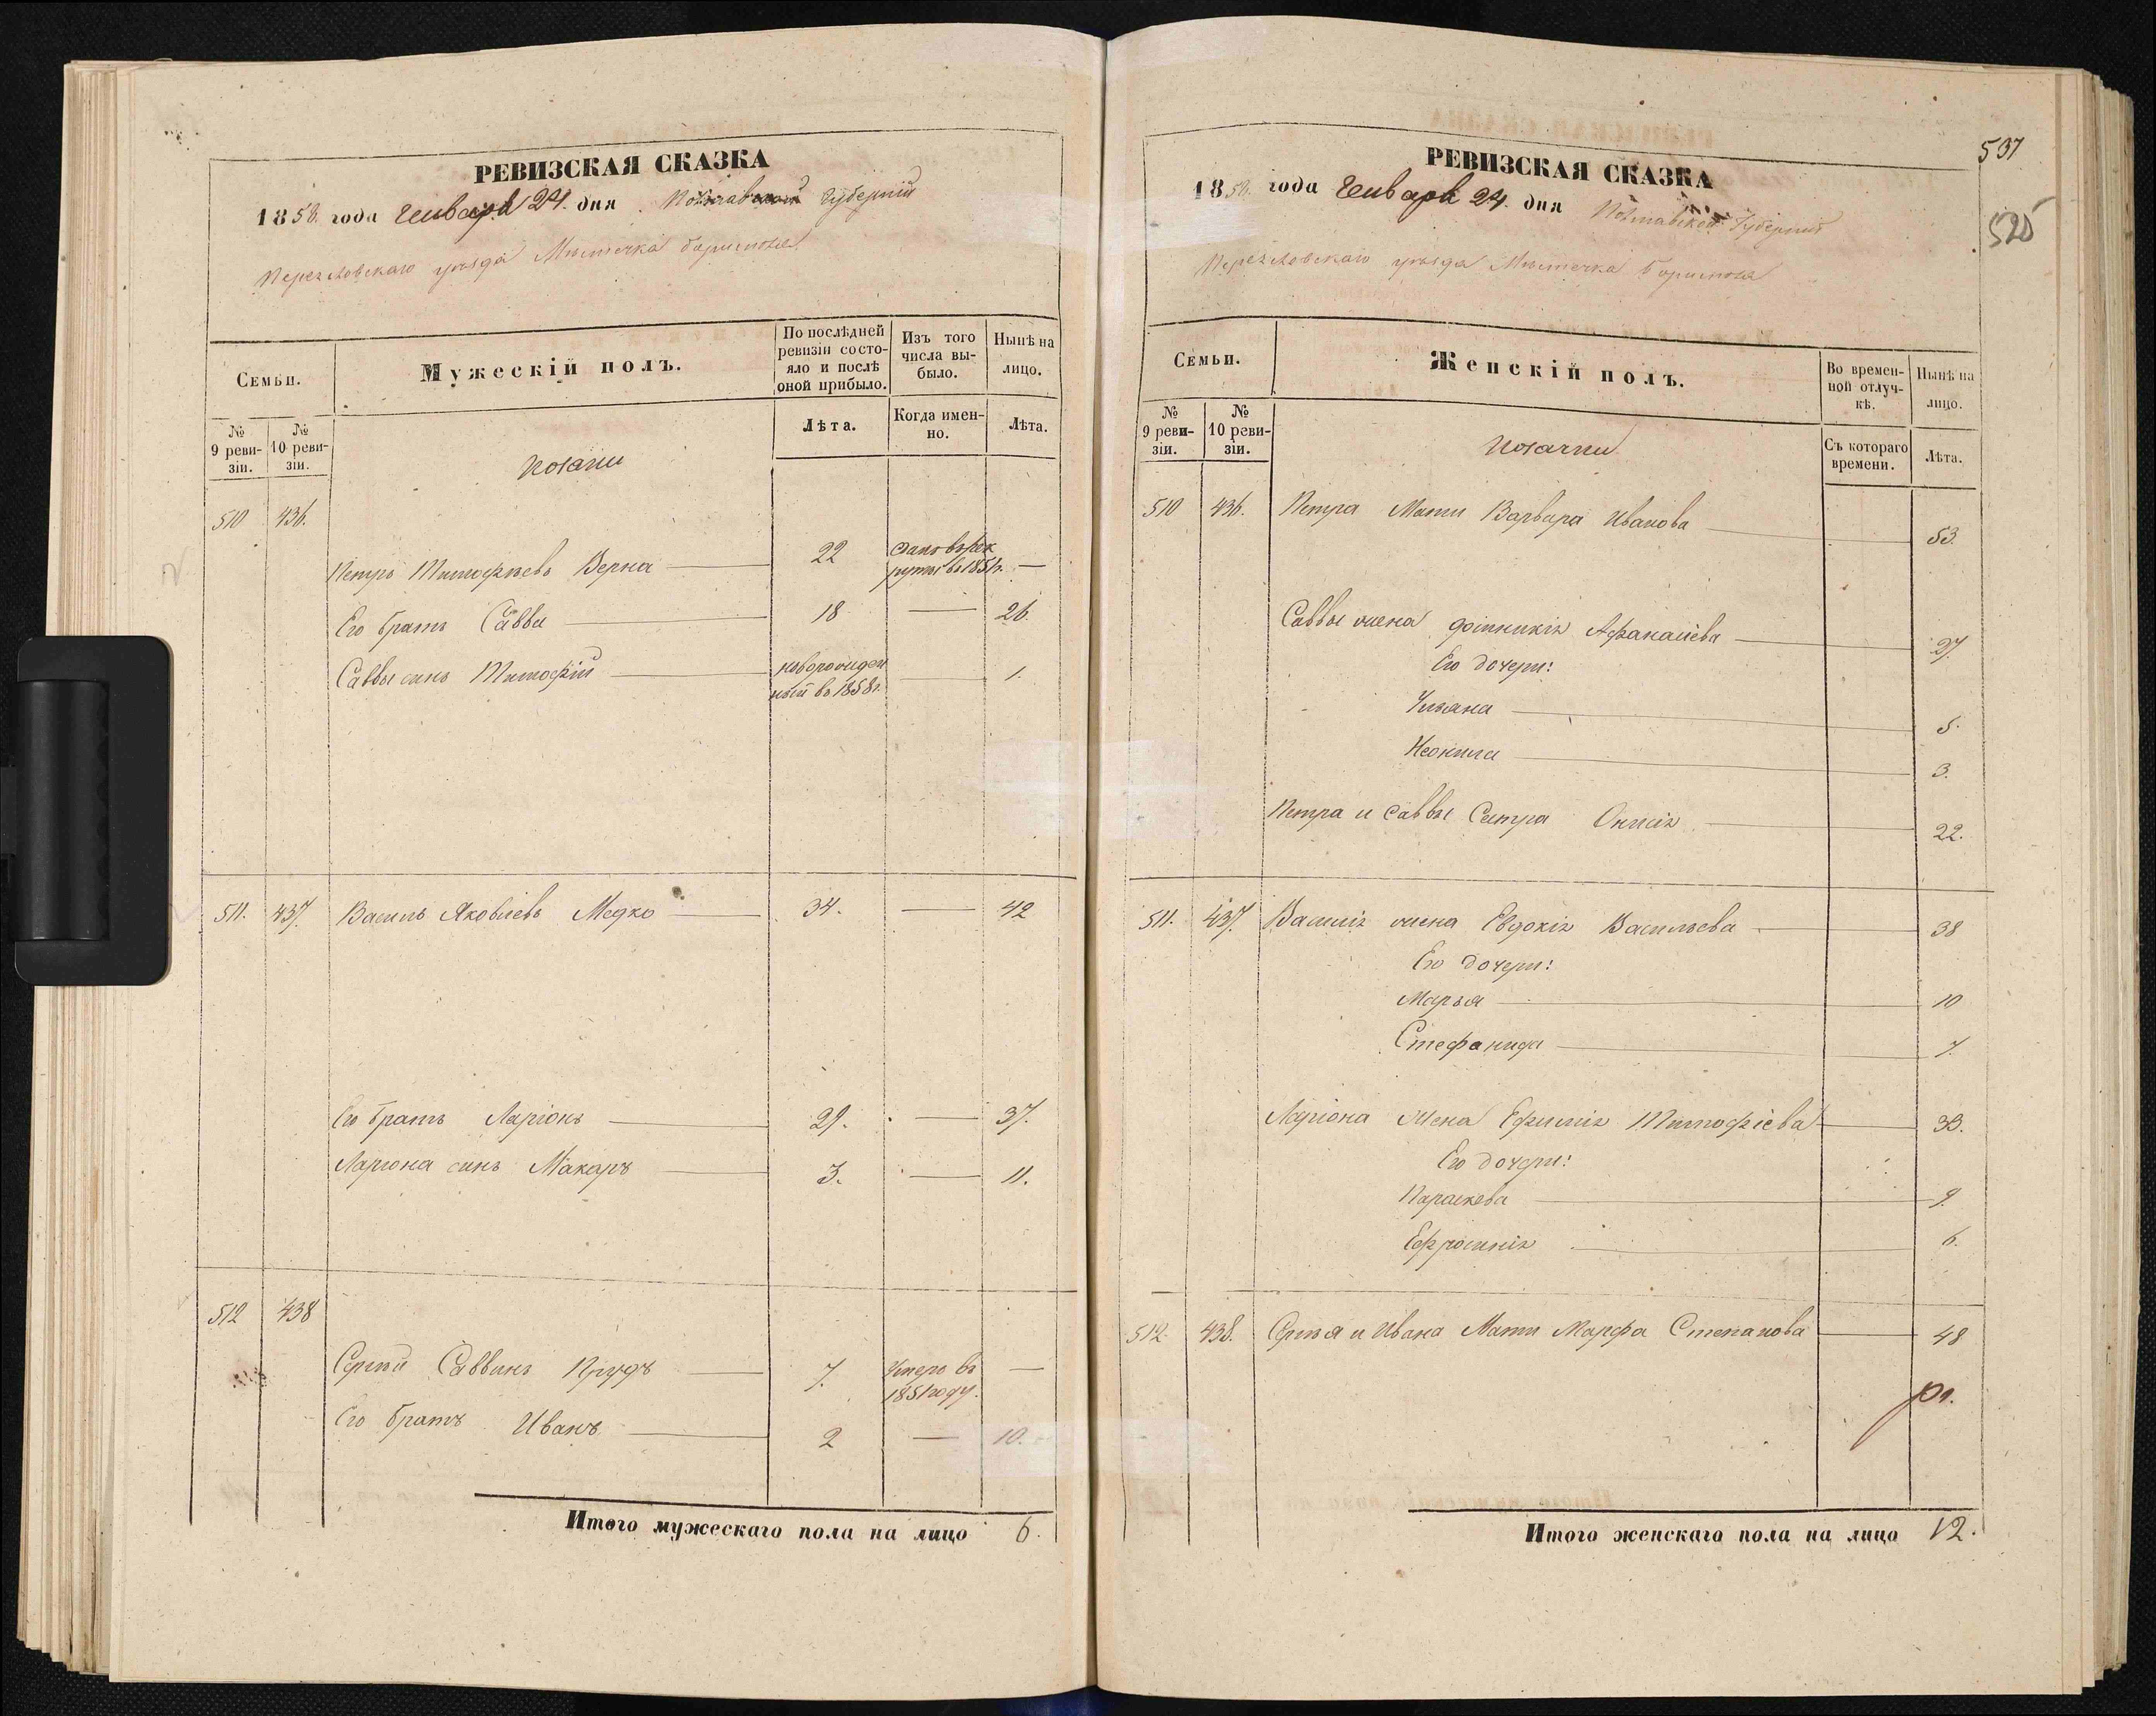 РЕВИЗСКАЯ СКАЗКА
1858. года Генваря 24. дня Полтавской Губернии
Переяловскаго уезда Мѣстечка Борисполя
Семьи.
Мужескій полъ.
По послѣдней ревизіи состояло и послѣ оной прибыло.
Изъ того числа выбыло.
Нынѣ на лицо.
№ 9 ревизіи.
№ 10 ревизіи.
Лѣта.
Когда именно.
Лѣта.
Козаки
510 436.
Петръ Тимофѣевъ Верна 22 Сданъ въ рекруты въ 1851г. —
Его братъ Савва 18 — 26.
Саввы синъ Тимофій новорожденный въ 1858г. — 1.
511. 437. Василь Яковлевъ Медко 34. — 42
Его братъ Ларіонъ 29. — 37.
Ларіона синъ Макаръ 3. — 11.
512 438
Сергѣй Саввинъ Прудъ 7. Умеръ въ 1851 году. —
Его братъ Иванъ 2 — 10.
Итого мужескаго пола на лицо 6.
537
525
РЕВИЗСКАЯ СКАЗКА
1858. года Генваря 24. дня Полтавской Губерніи
Переяловскаго уезда Мѣстечка Борисполя
Семьи.
Женскій полъ.
Во временной отлучкѣ.
Нынѣ на лицо.
№ 9 ревизіи.
№ 10 ревизіи.
Съ котораго времени.
Лѣта.
Козачки
510 436. Петра Мати Варвара Иванова — 53.
Саввы жена Афанасіева — 27.
Его дочери:
Ульяна — 5.
Неонила — 3.
Петра и Саввы Сестра Онисія — 22.
511. 437. Василія жена Евдокія Васильева — 38
Его дочери:
Марья — 10
Стефанида — 7.
Ларіона жена Ефимія Тимофіева — 33.
Его дочери:
Параскева — 9.
Ефросинія — 6.
512. 438. Сергѣя и Ивана Мати Марфа Степанова — 48
Итого женскаго пола на лицо 12.